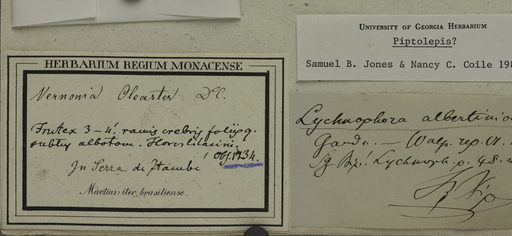 HERBARIUM REGIUM MONACENSE
Vernonia Oleaster DC.
Frutex 3-4. ramis crebris foliisq.
subtus albotom. Flores lilacini.
Obs. 1734.
In Serra de Itambé
Martius: iter brasiliense.
UNIVERSITY OF GEORGIA HERBARIUM
Piptolepis?
Samuel B. Jones & Nancy C. Coile 198
Lychnophora albertinio
Gardn. — Walp. rep. VI.
Lychnoph. p. 48.